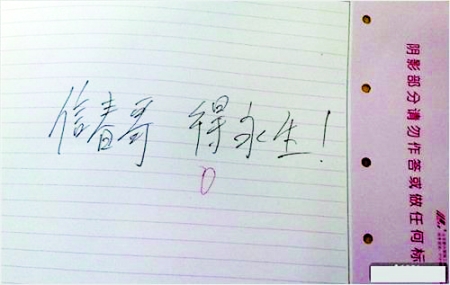 信春哥 得永生!
0
阴影部分请勿作答或做任何标